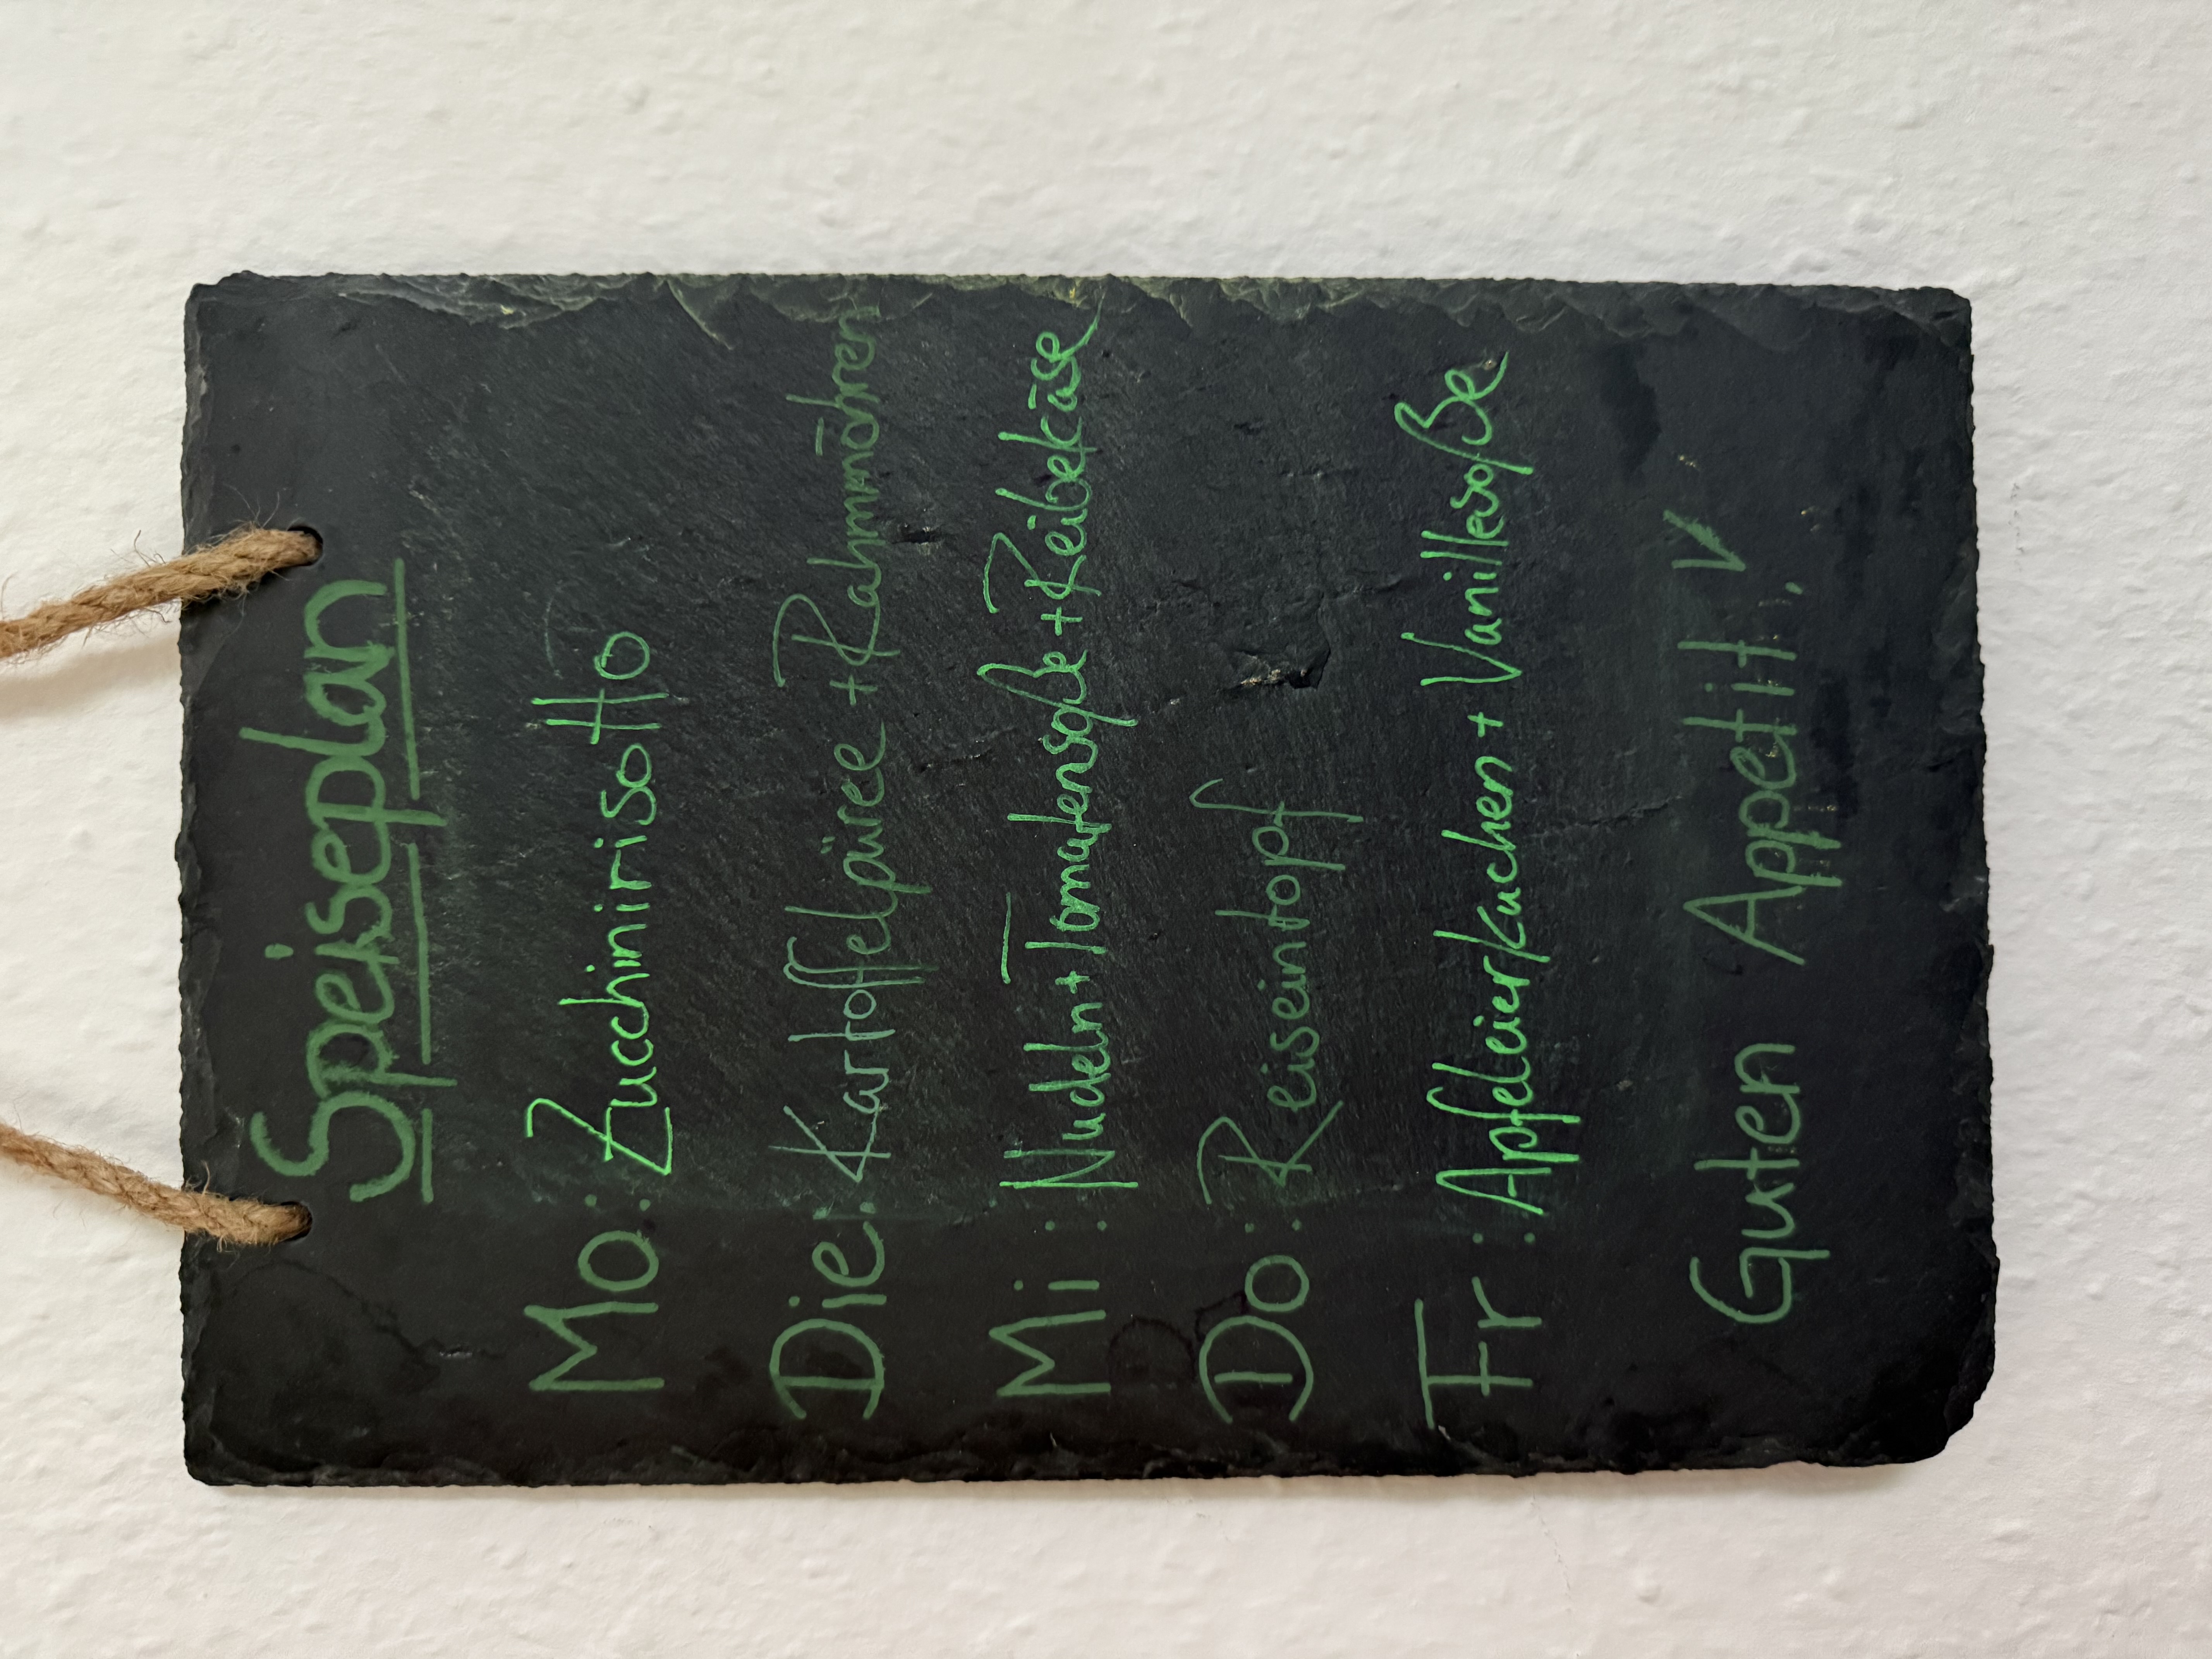 Speiseplan
Mo: Zucchinirisotto
Die: Kartoffelpüree + Rahmmöhren
Mi: Nudeln + Tomatensoße + Reibekäse
Do: Reiseintopf
Fr: Apfeleierkuchen + Vanillesoße
Guten Appetit!